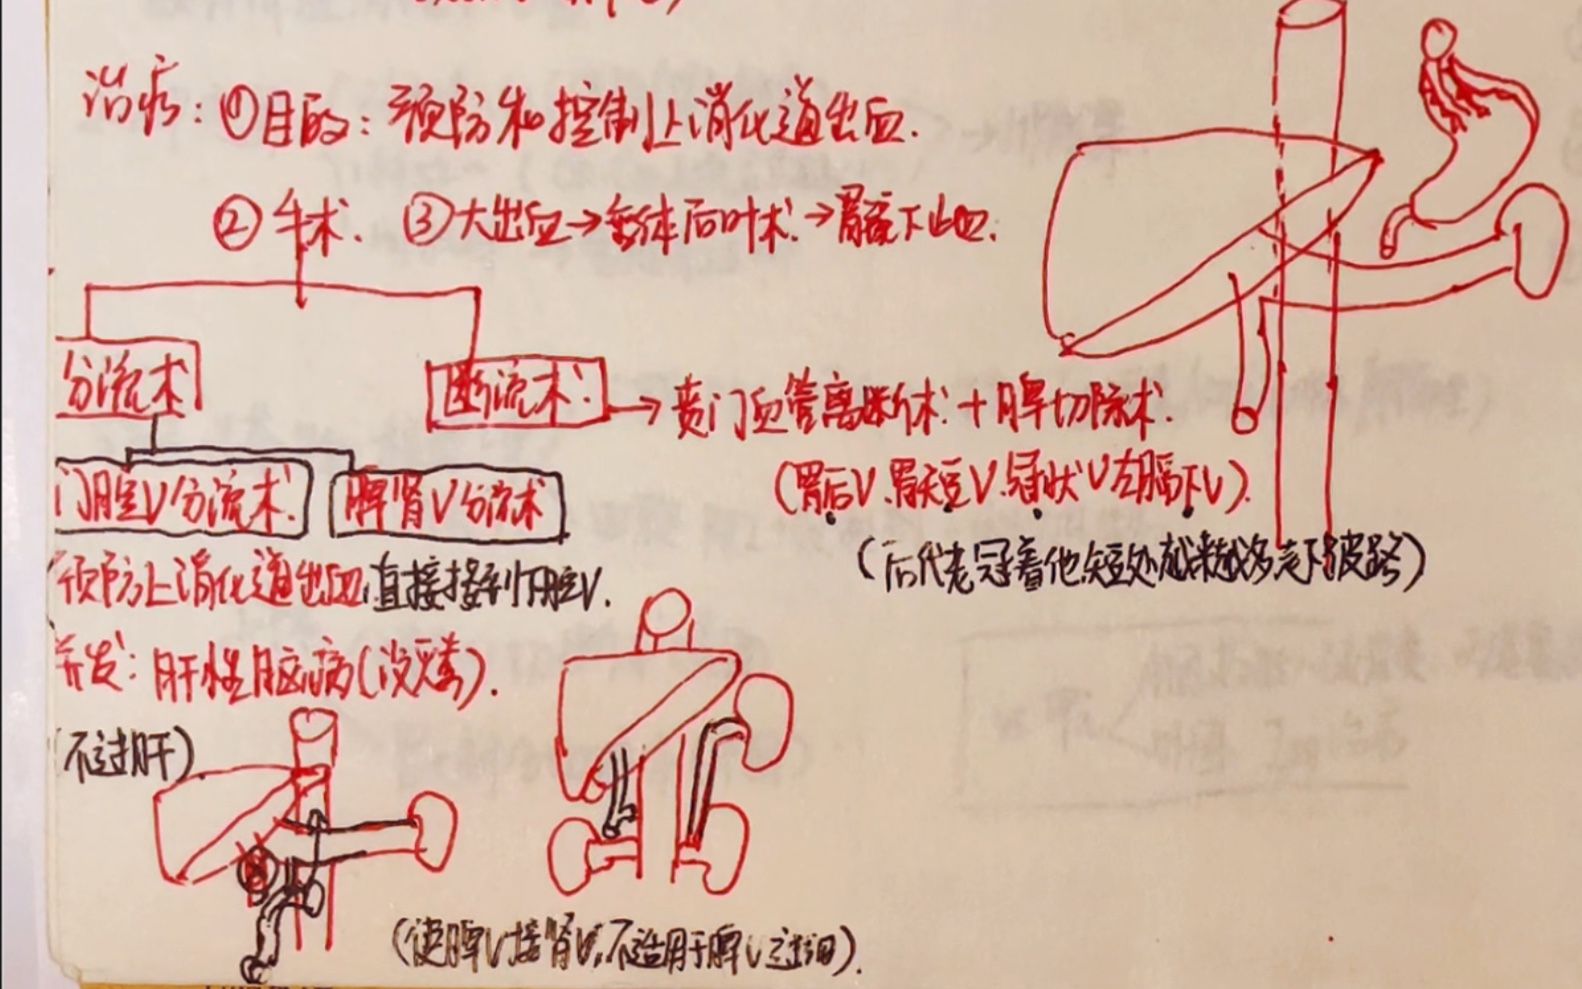 治疗：①目的：预防和控制上消化道出血.
②手术. ③大出血→垂体后叶术.→胃镜下止血.
分流术
断流术：→贲门血管离断术.+脾切除术.
门腔V分流术.
脾肾V分流术
(胃后V.胃短V.冠状V左膈下V).
(后代老冠着他短处越来越多走下坡路)
预防上消化道出血,直接接到下腔V.
并发：肝性脑病(没解毒).
(不过肝)
(使脾V接肾V,不适用于脾V过细).